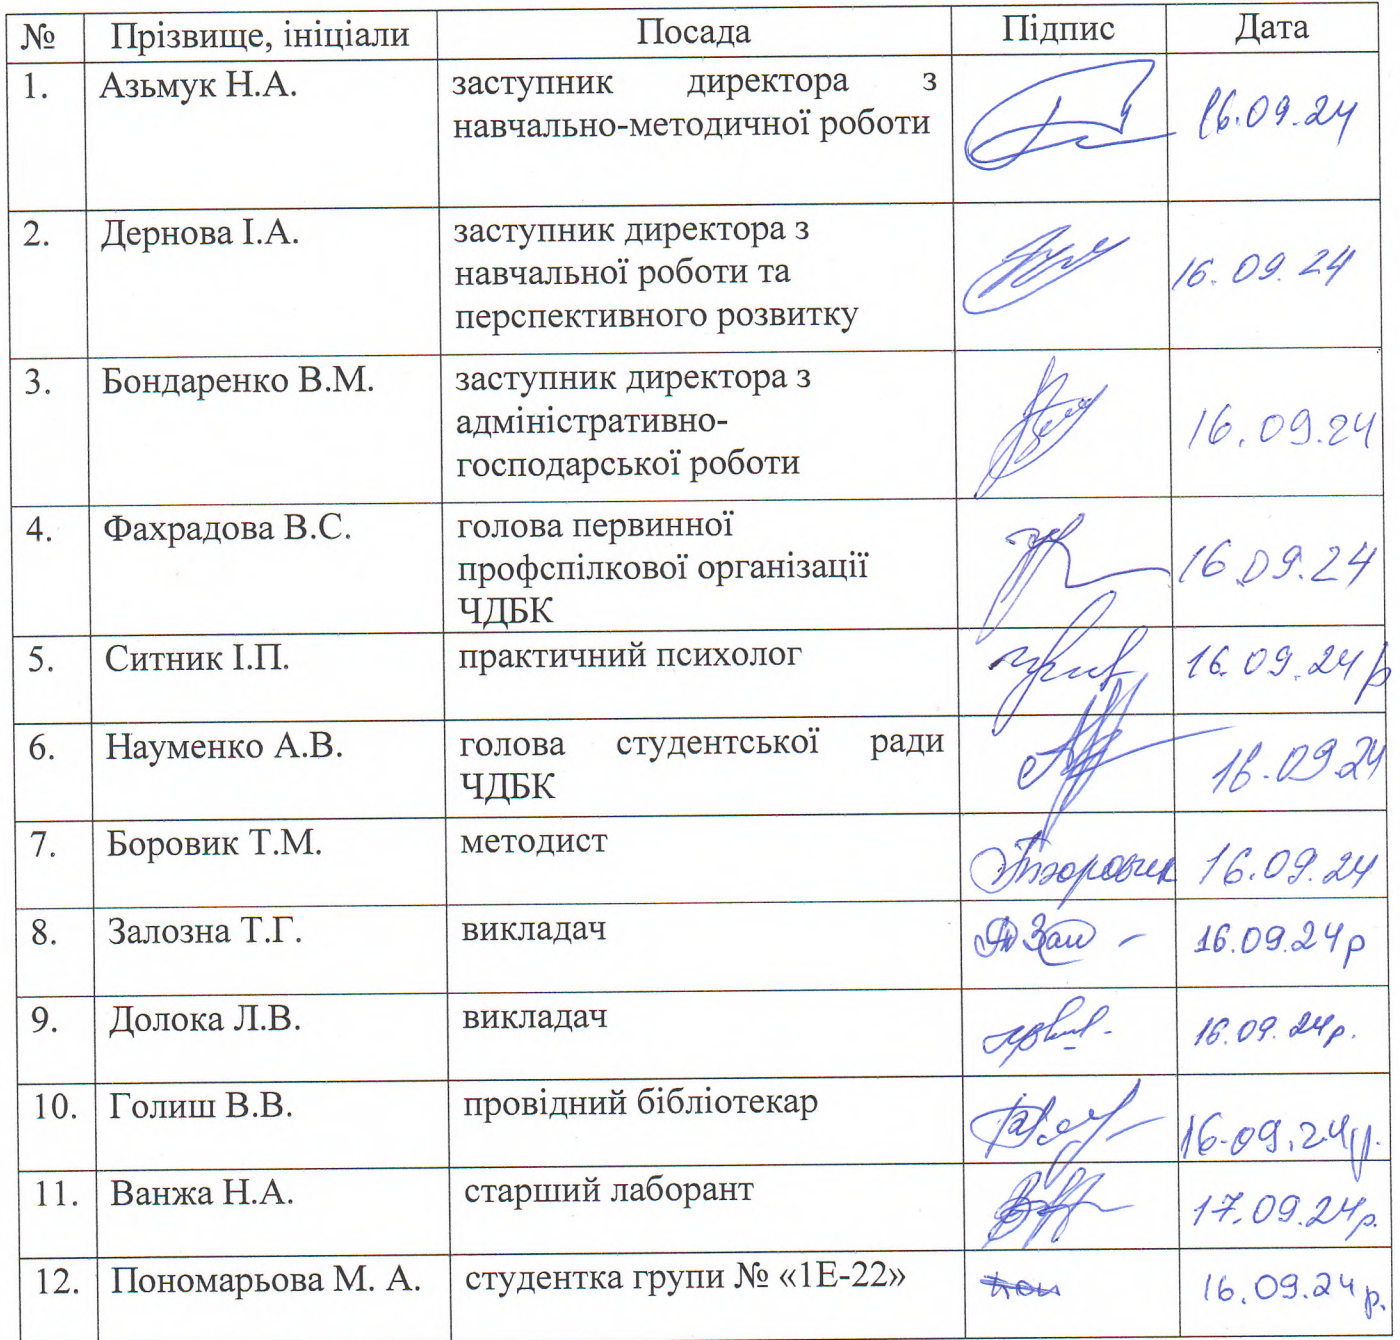 № Прізвище, ініціали Посада Підпис Дата
1. Азьмук Н.А. заступник директора з 16.09.24
навчально-методичної роботи
2. Дернова І.А. заступник директора з
навчальної роботи та 16.09.24
перспективного розвитку
3. Бондаренко В.М. заступник директора з
адміністративно- 16.09.24
господарської роботи
4. Фахрадова В.С. голова первинної
профспілкової організації 16.09.24
ЧДБК
5. Ситник І.П. практичний психолог 16.09.24р
6. Науменко А.В. голова студентської ради 16.09.24
ЧДБК
7. Боровик Т.М. методист 16.09.24
8. Залозна Т.Г. викладач 16.09.24р
9. Долока Л.В. викладач 16.09.24р.
10. Голиш В.В. провідний бібліотекар 16.09.24р.
11. Ванжа Н.А. старший лаборант 17.09.24р.
12. Пономарьова М. А. студентка групи № «1Е-22» 16.09.24р.